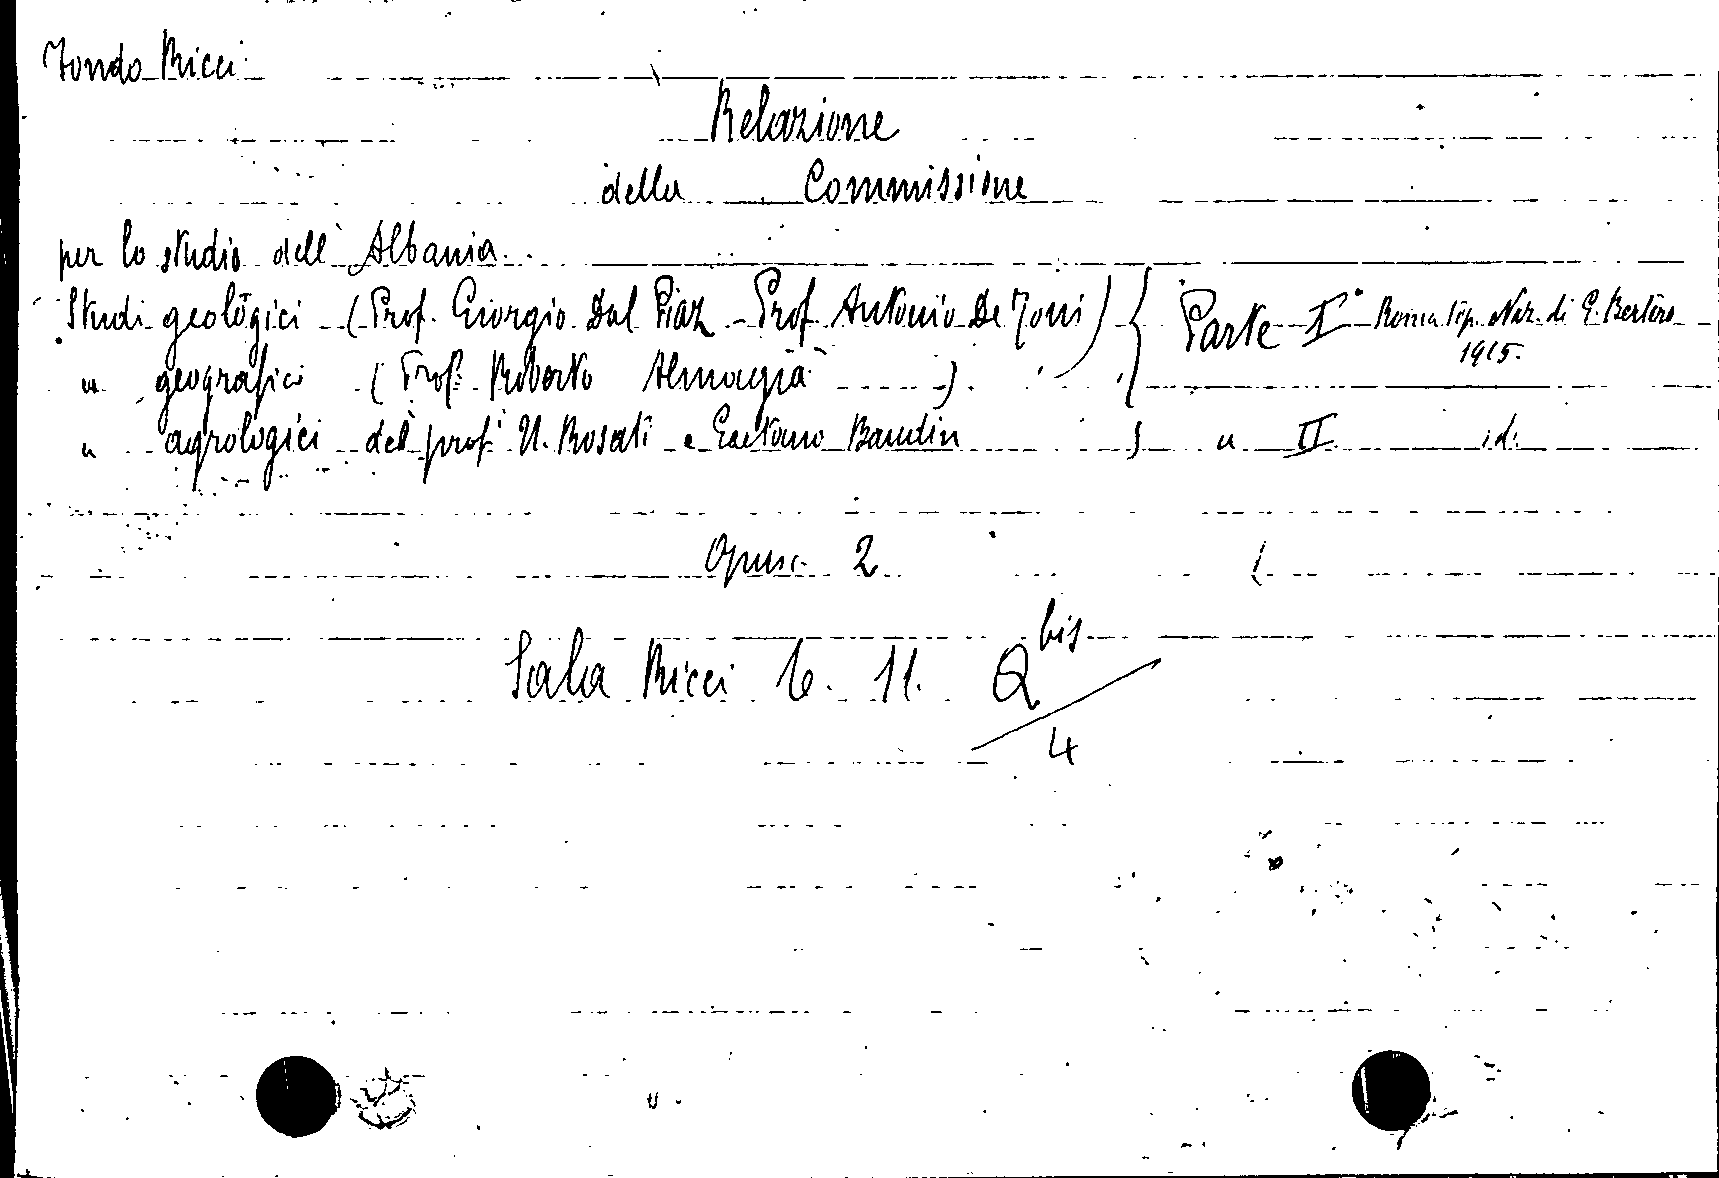 Fondo Ricci
Relazione
della Commissione
per lo studio dell'Albania
Studi geologici (Prof. Giorgio Dal Piaz - Prof Antonio De Toni) { Parte I° Roma tip. Naz. di G. Bertero
1915.
" geografici (Prof. Roberto Almagià )
" agrologici dei prof. U. Rosati e Gaetano Baudin } " II id.
Opusc. 2
Sala Ricci 16. 11. Q bis
4